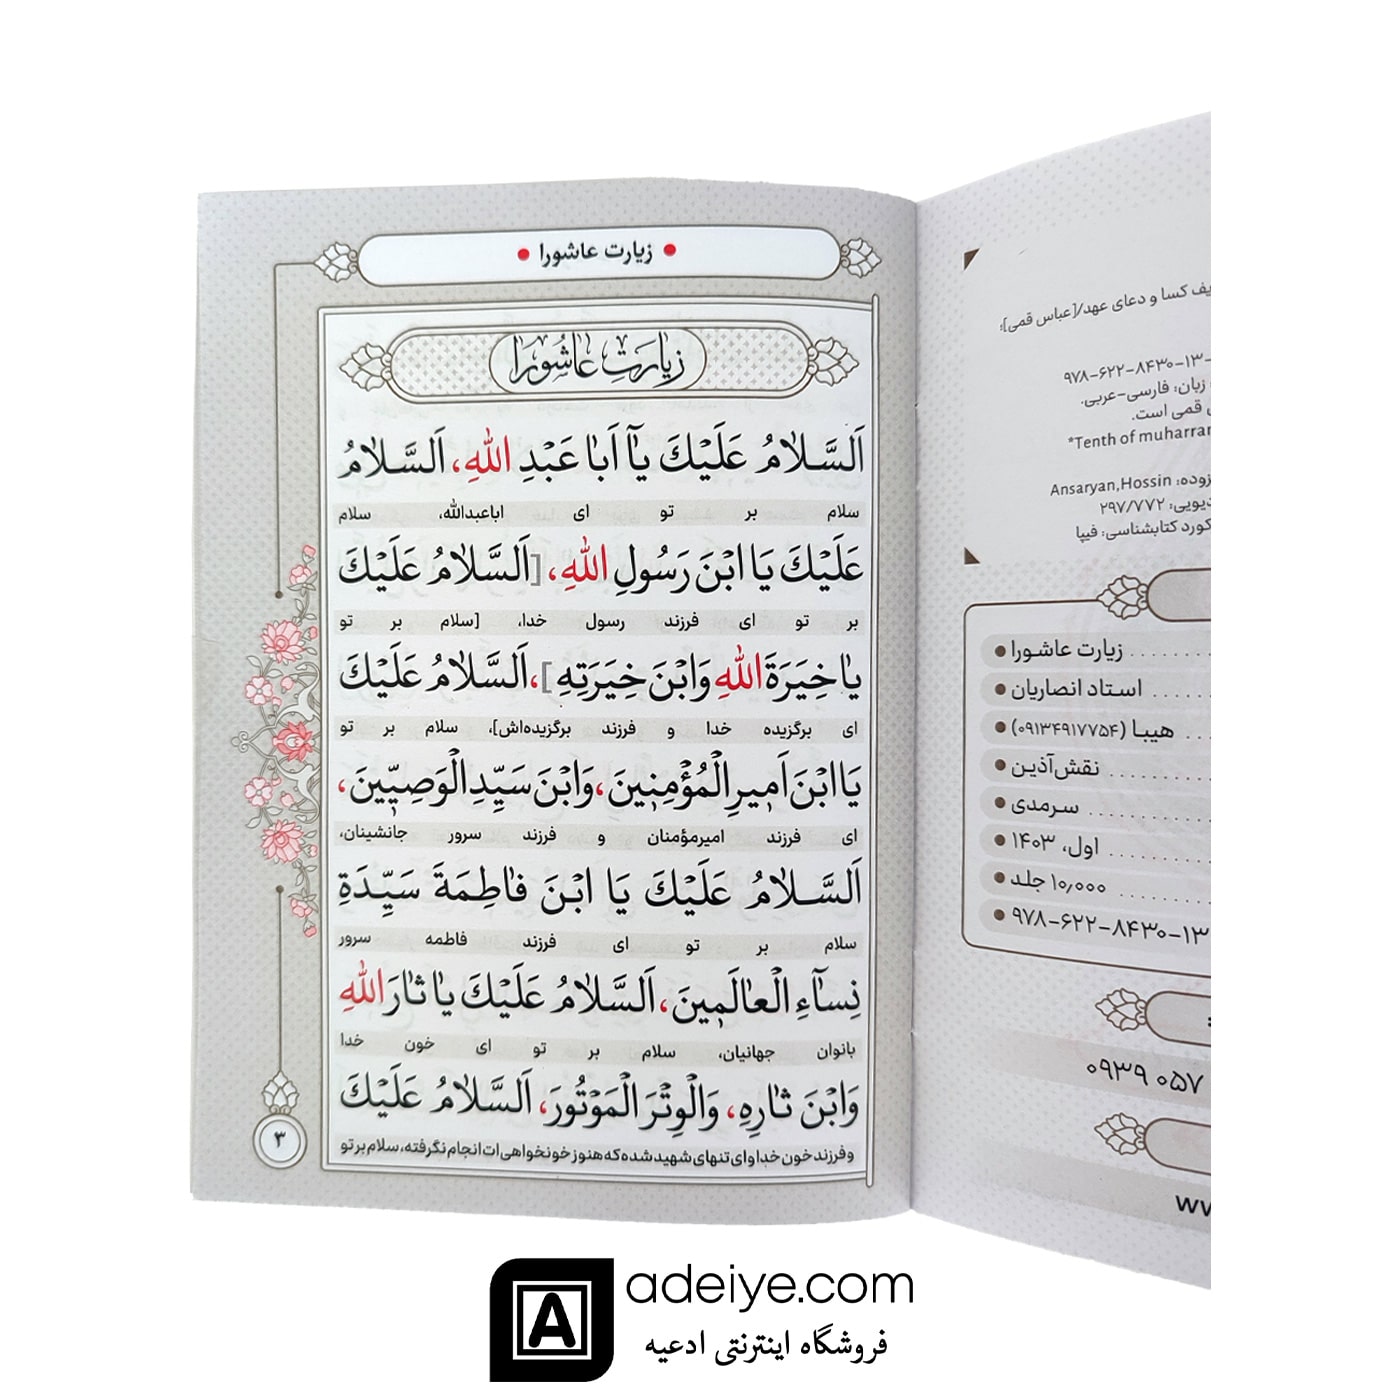 • زیارت عاشورا •
زیارت عاشورا
اَلسَّلامُ عَلَیْکَ یآ اَبا عَبْدِ اللهِ، اَلسَّلامُ
سلام بر تو ای اباعبدالله، سلام
عَلَیْکَ یَا ابْنَ رَسُولِ اللهِ، [اَلسَّلامُ عَلَیْکَ
بر تو ای فرزند رسول خدا، [سلام بر تو
یا خِیَرَةَ اللهِ وَابْنَ خِیَرَتِهِ]، اَلسَّلامُ عَلَیْکَ
ای برگزیده خدا و فرزند برگزیده‌اش]، سلام بر تو
یَا ابْنَ اَمیرِ الْمُؤْمِنینَ، وَابْنَ سَیِّدِ الْوَصِیّینَ،
ای فرزند امیرمؤمنان و فرزند سرور جانشینان،
اَلسَّلامُ عَلَیْکَ یَا ابْنَ فاطِمَةَ سَیِّدَةِ
سلام بر تو ای فرزند فاطمه سرور
نِسآءِ الْعالَمینَ، اَلسَّلامُ عَلَیْکَ یا ثارَ اللهِ
بانوان جهانیان، سلام بر تو ای خون خدا
وَابْنَ ثارِهِ، وَالْوِتْرَ الْمَوْتُورَ، اَلسَّلامُ عَلَیْکَ
و فرزند خون خدا و ای تنهای شهید شده که هنوز خونخواهی ات انجام نگرفته، سلام بر تو
۳
کسا و دعای عهد/[عباس قمی]؛
۹۷۸-۶۲۲-۸۴۳۰-۱۳-
زبان: فارسی-عربی.
قمی است.
*Tenth of muharram
Ansaryan,Hossin
۲۹۷/۷۷۲
کتابشناسی: فیپا
• زیارت عاشورا
• استاد انصاریان
• هیبا (۰۹۱۳۴۹۱۷۷۵۴)
• نقش‌آذین
• سرمدی
• اول، ۱۴۰۳
• ۱۰,۰۰۰ جلد
• ۹۷۸-۶۲۲-۸۴۳۰-۱۳
۰۹۳۹ ۰۵۷
adeiye.com
فروشگاه اینترنتی ادعیه
A